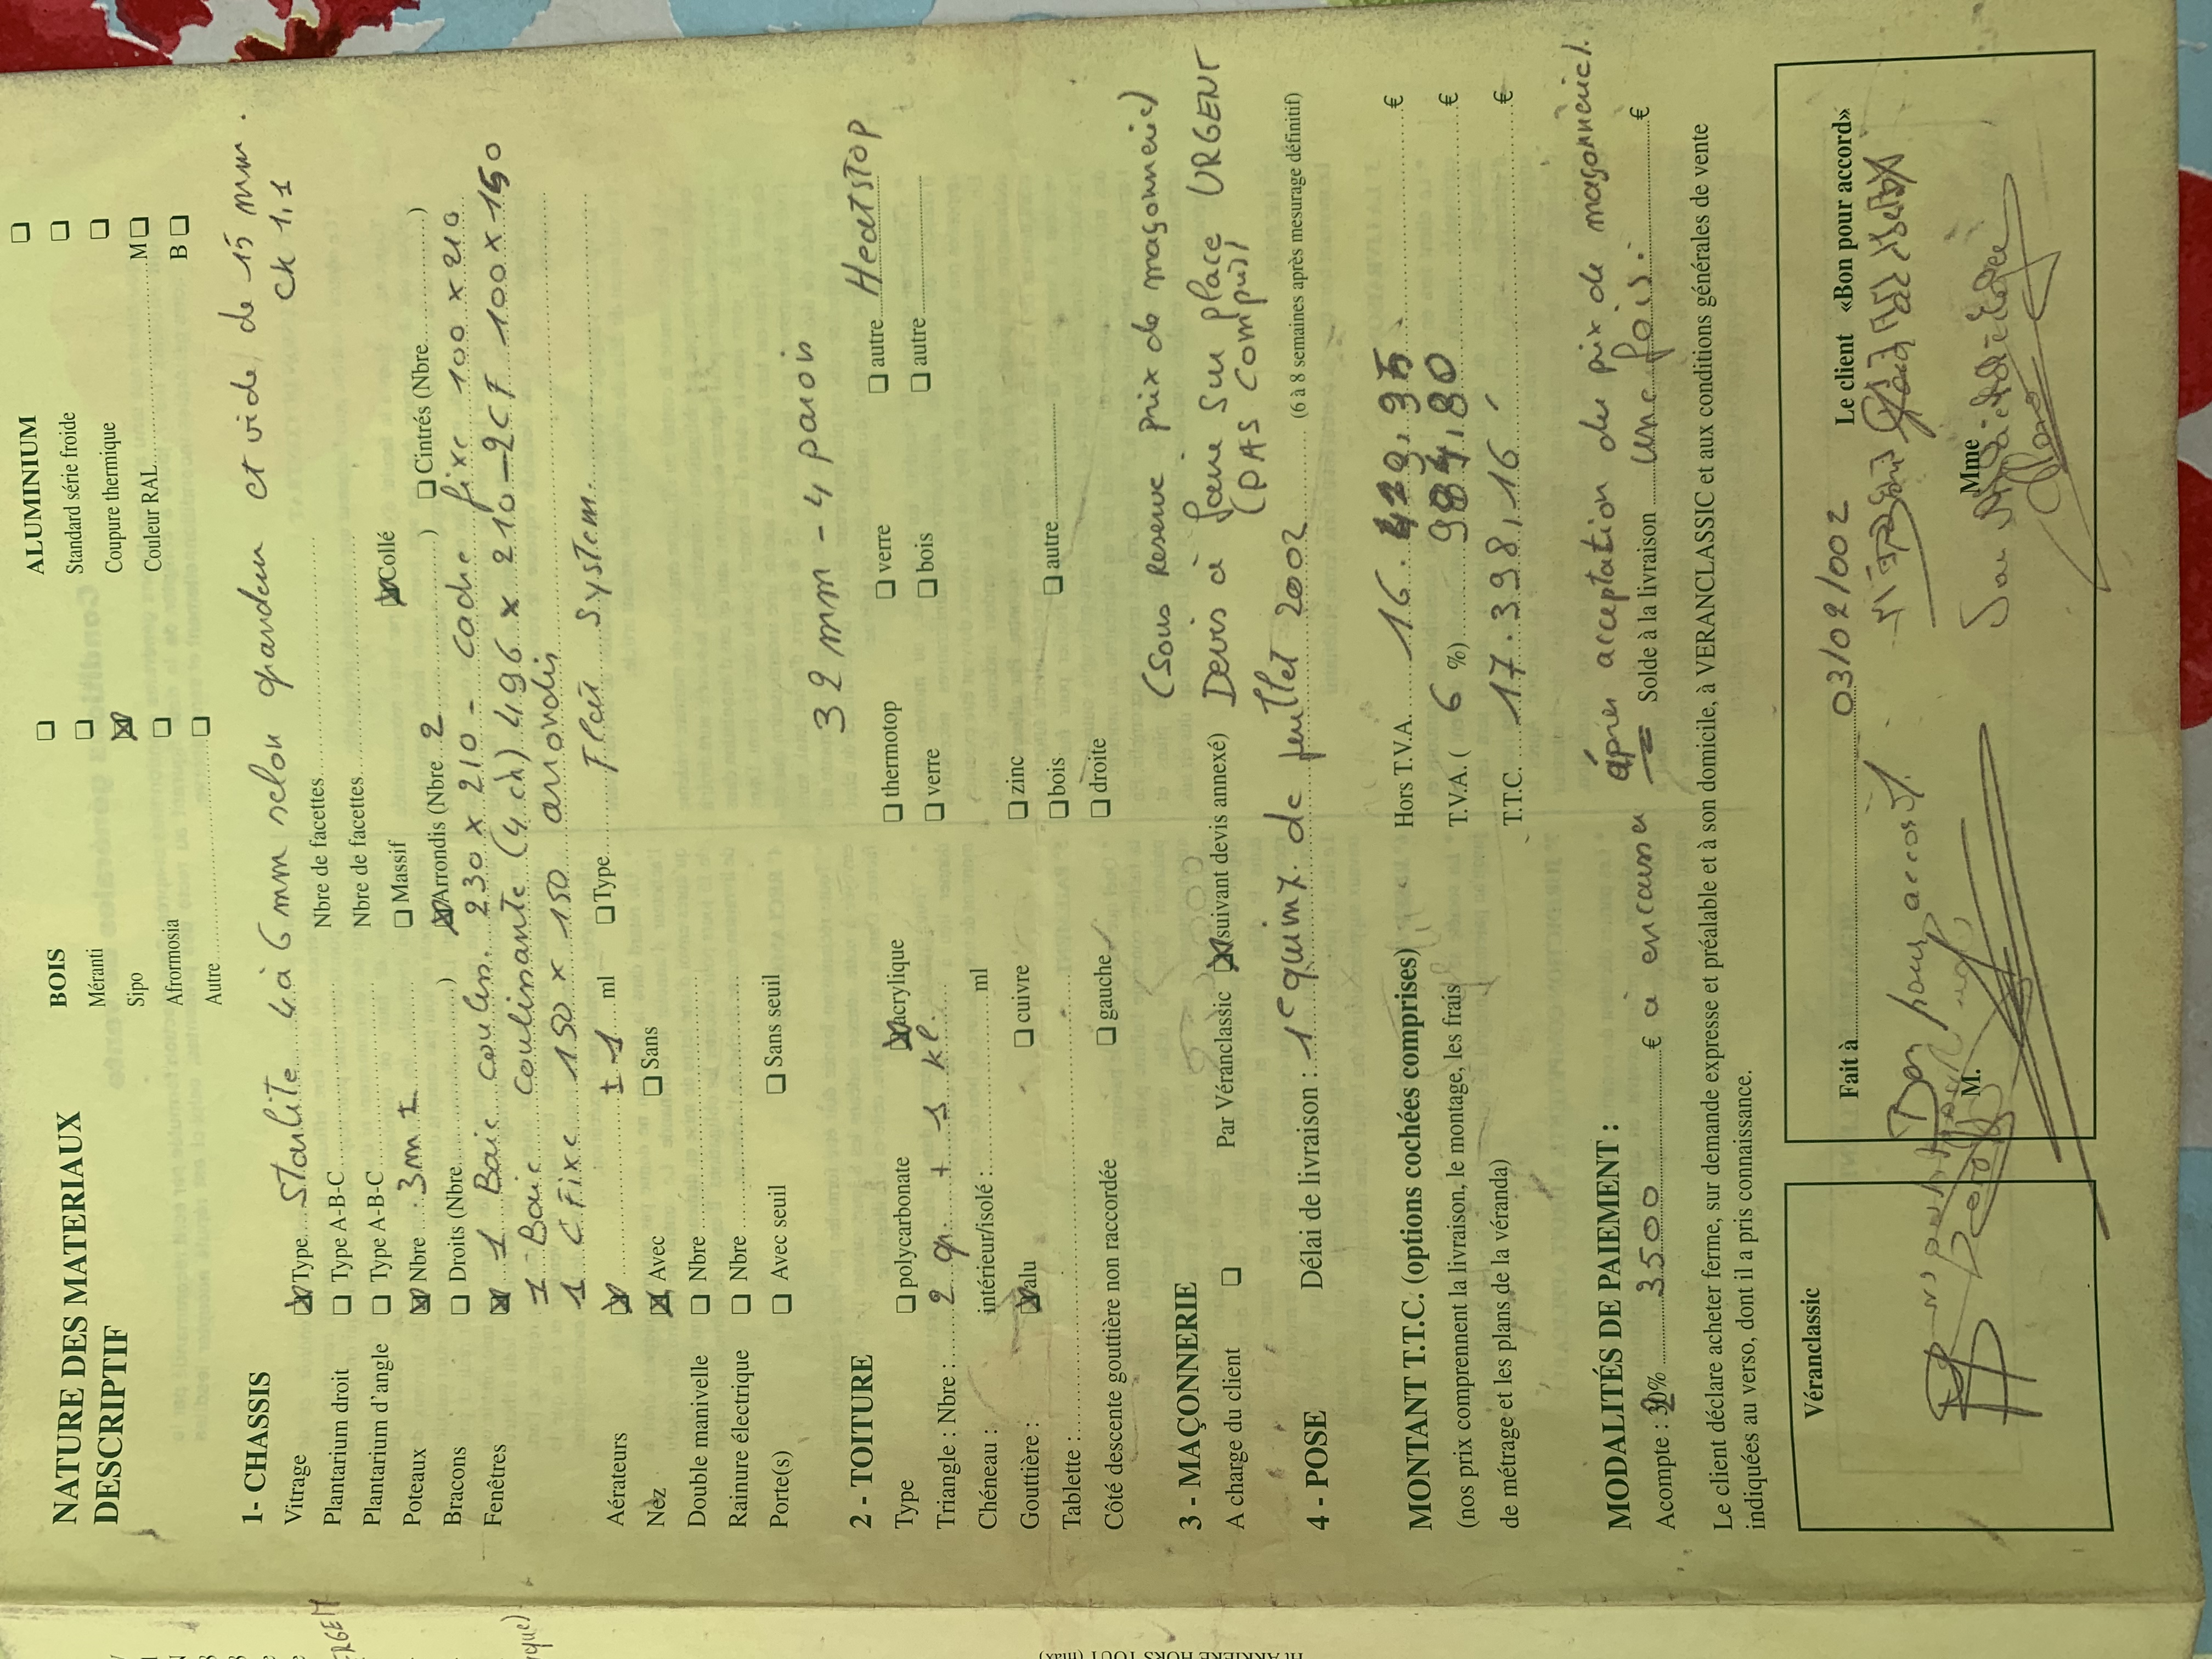 NATURE DES MATERIAUX
DESCRIPTIF
BOIS ALUMINIUM
Méranti ☐ Standard série froide ☐
Sipo ☒ Coupure thermique ☐
Afrormosia ☐ Couleur RAL M ☐
Autre ☐ B ☐
1- CHASSIS
Vitrage ☒ Type Starlite 4 à 6 mm selon grandeur et vide de 15 mm.
ck 1,1
Plantarium droit ☐ Type A-B-C Nbre de facettes
Plantarium d'angle ☐ Type A-B-C Nbre de facettes
Poteaux ☒ Nbre : 3 m ± ☐ Massif ☒ Collé
Bracons ☐ Droits (Nbre ) ☒ Arrondis (Nbre 2 ) ☐ Cintrés (Nbre )
Fenêtres ☒ 1 Baie coulin. 230 x 210 - cadre fixe 100 x 210
1 Baie coulinante (4 ch) 496 x 210 - 2 CF 100 x 150
1 C Fixe 150 x 150 arrondis
Aérateurs ☒ ± 1 ml ☐ Type Flat System
Nez ☒ Avec ☐ Sans
Double manivelle ☐ Nbre
Rainure électrique ☐ Nbre
Porte(s) ☐ Avec seuil ☐ Sans seuil
2 - TOITURE 32 mm - 4 parois
Type ☐ polycarbonate ☒ acrylique ☐ thermotop ☐ verre ☐ autre Heatstop
Triangle : Nbre : 2 gr. + 1 kl. ☐ verre ☐ bois ☐ autre
Chéneau : intérieur/isolé : ml
Gouttière : ☒ alu ☐ cuivre ☐ zinc
Tablette : ☐ bois ☐ autre
Côté descente gouttière non raccordée ☐ gauche ☐ droite
(Sous Reserve prix de maçonnerie)
3 - MAÇONNERIE
A charge du client ☐ Par Véranclassic ☒ (suivant devis annexé) Devis à faire sur place URGENT
(PAS compris)
4 - POSE Délai de livraison : 1e quinz. de juillet 2002 (6 à 8 semaines après mesurage définitif)
MONTANT T.T.C. (options cochées comprises) Hors T.V.A. 16.429,35 €
(nos prix comprennent la livraison, le montage, les frais T.V.A. ( 6 %) 984,80 €
de métrage et les plans de la véranda) T.T.C. 17.398,16 €
MODALITÉS DE PAIEMENT :
après acceptation du prix de maçonnerie).
Acompte : 30% 3500 € à encaisser Solde à la livraison une fois. €
Le client déclare acheter ferme, sur demande expresse et préalable et à son domicile, à VERANCLASSIC et aux conditions générales de vente
indiquées au verso, dont il a pris connaissance.
Véranclassic
Fait à 03/02/002 Le client «Bon pour accord»
Bon pour accord
M. Mme